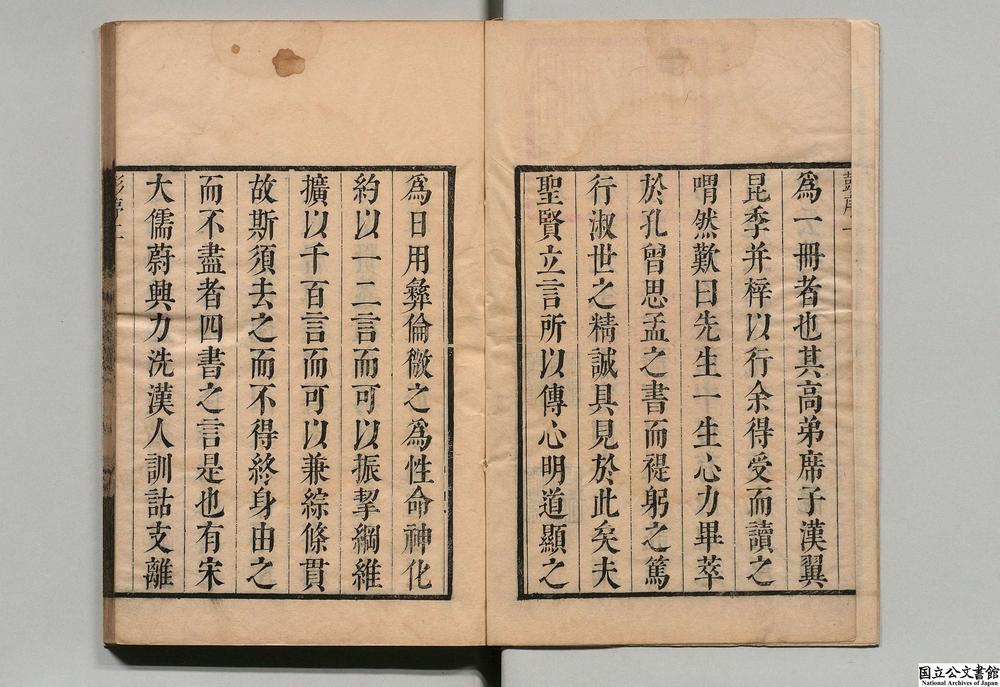 彭序一
爲一冊者也其高弟席子漢翼
昆季并梓以行余得受而讀之
喟然歎曰先生一生心力畢萃
於孔曾思孟之書而褆躬之篤
行淑世之精誠具見於此矣夫
聖賢立言所以傳心明道顯之
爲日用彝倫微之爲性命神化
約以一二言而可以振挈綱維
擴以千百言而可以兼綜條貫
故斯須去之而不得終身由之
而不盡者四書之言是也有宋
大儒蔚興力洗漢人訓詁支離
彭序二
国立公文書館
National Archives of Japan